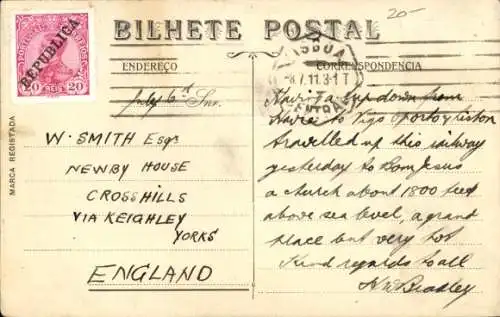 20-
BILHETE POSTAL
ENDEREÇO
CORRESPONDENCIA
PORTUGAL
REPUBLICA
20 REIS 20
LISBOA
7.11.3-T
CENTRAL
MARCA REGISTADA
July 6th
W. SMITH Esqr
NEWBY HOUSE
CROSSHILLS
VIA KEIGHLEY
YORKS
ENGLAND
down from
Havre to Vigo Oporto & Lisbon
travelled up this railway
yesterday to Bom Jesus
a church about 1800 feet
above sea level, a grand
place but very hot
Kind regards to all
Bradley